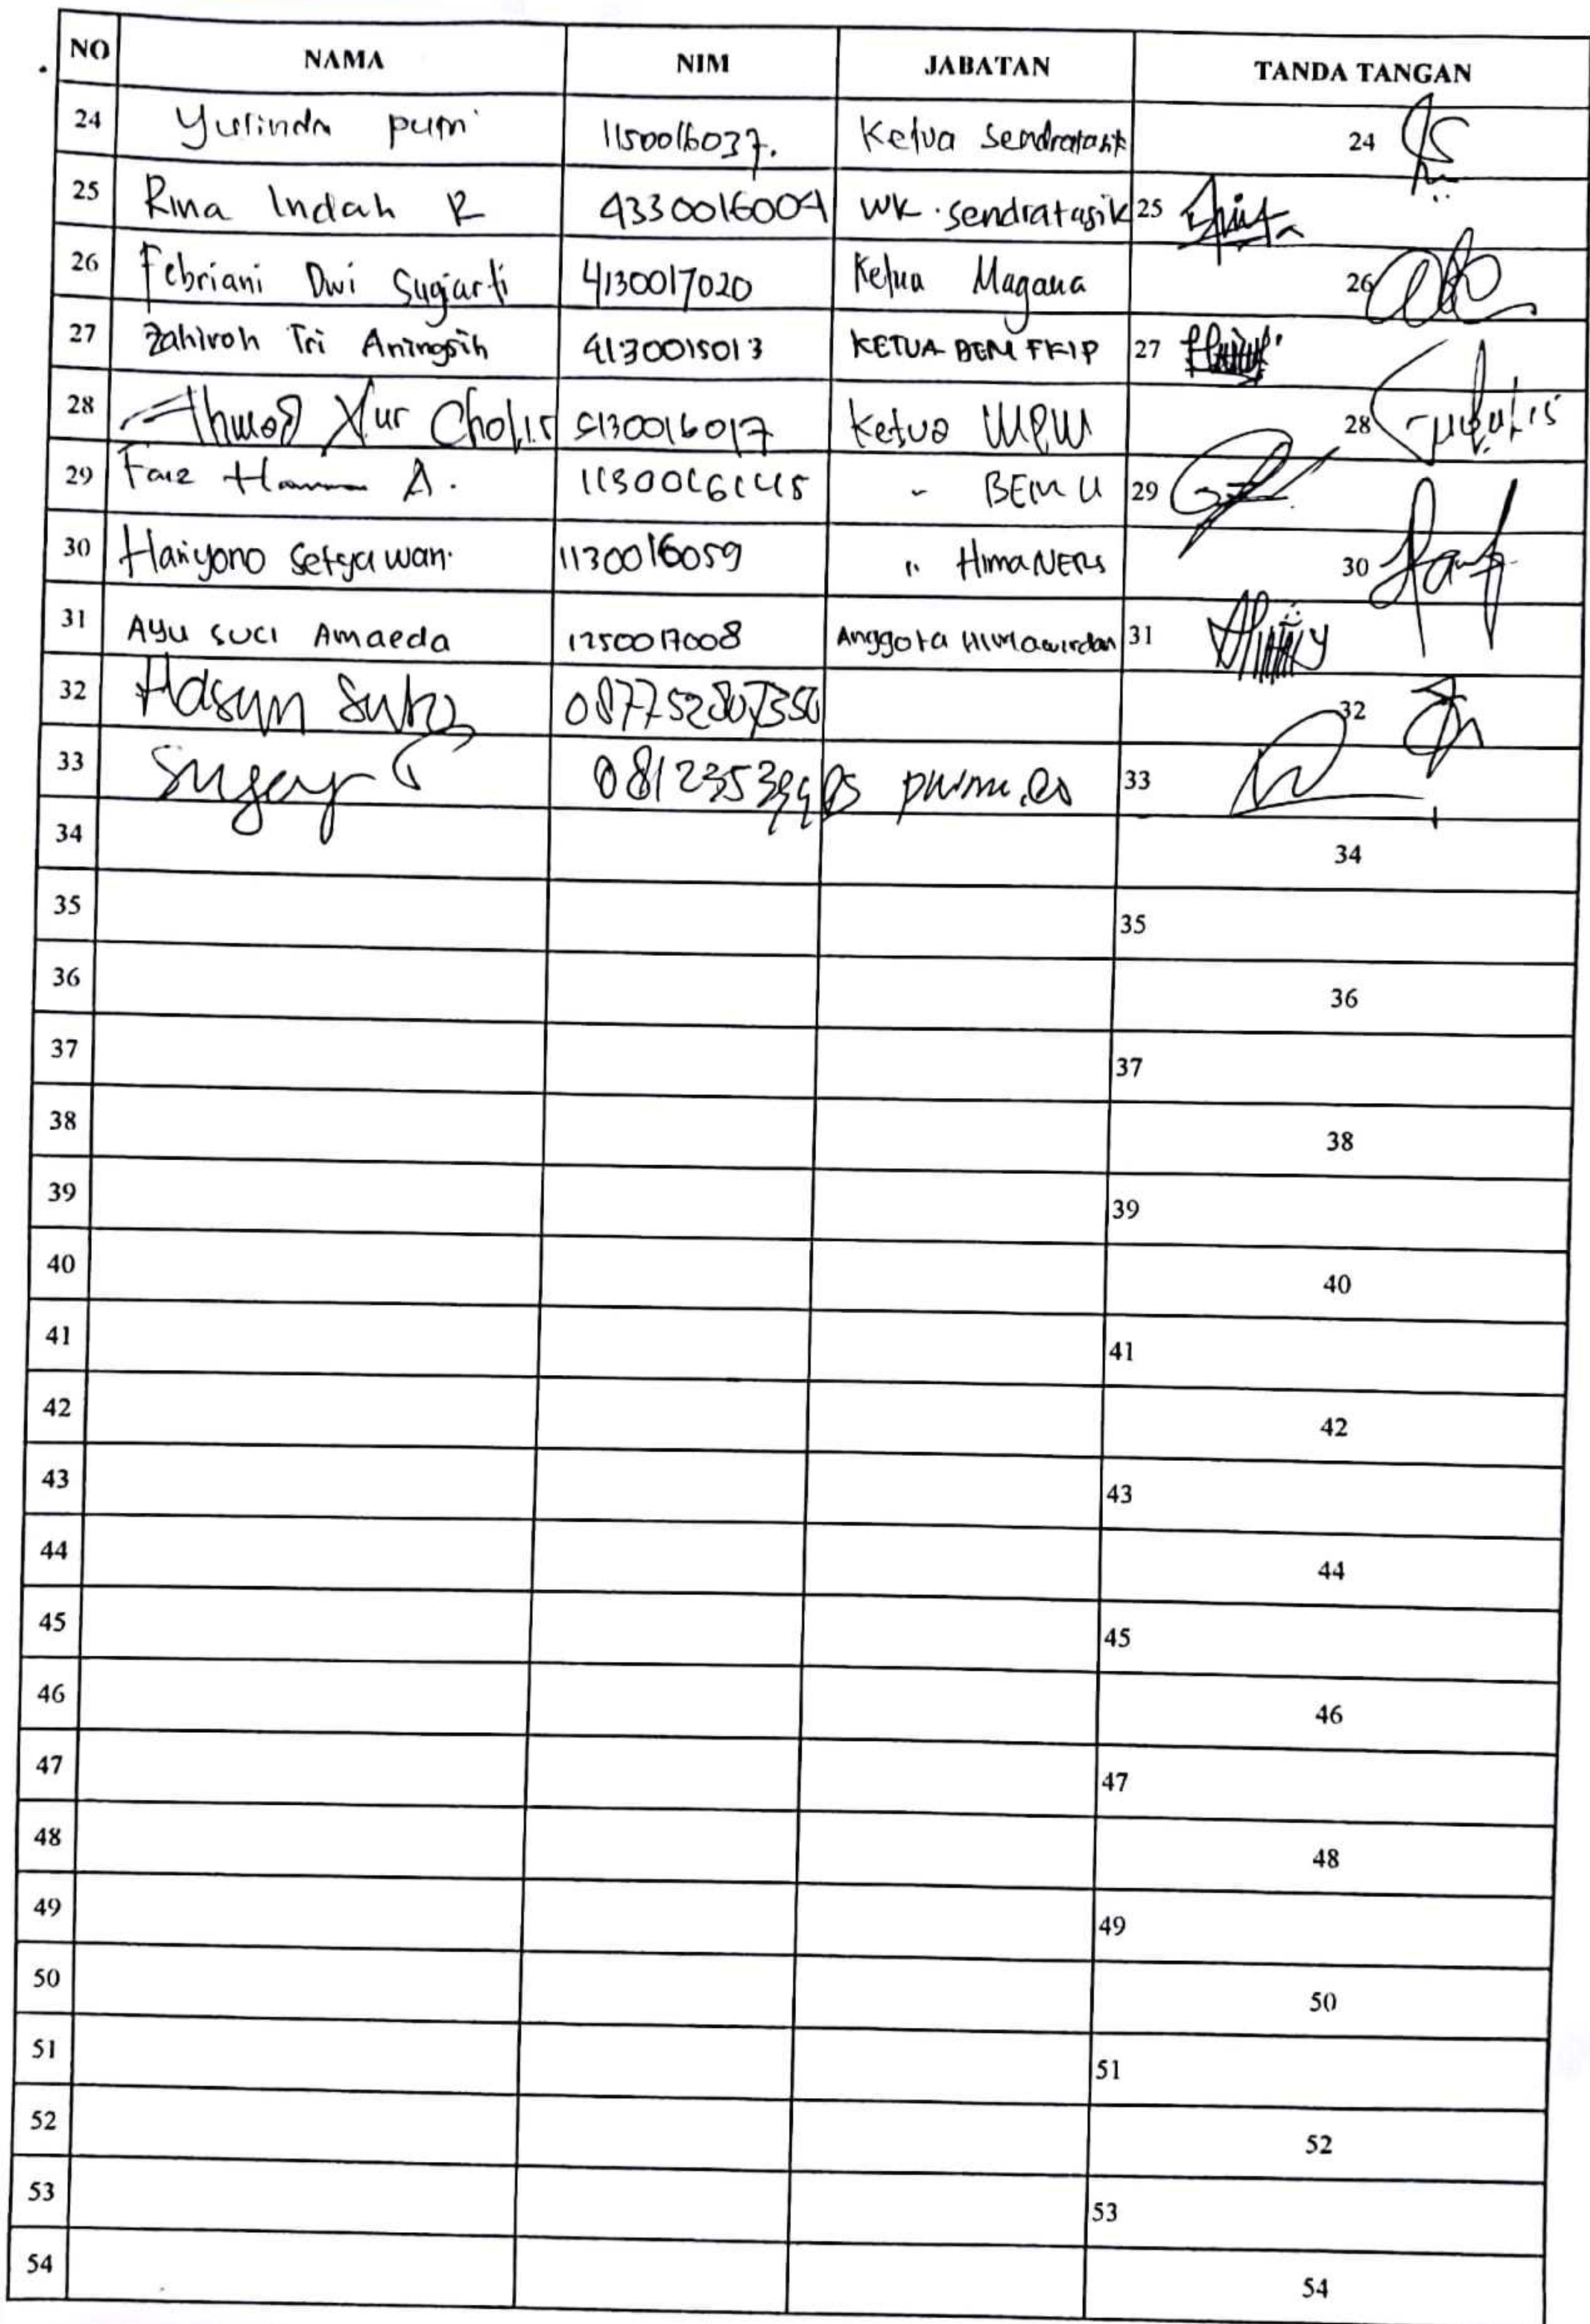 NO NAMA NIM JABATAN TANDA TANGAN
24 Yurinda putri 1150016037. Ketua Sendratasik 24
25 Rina Indah R 4330016004 WK. Sendratasik 25
26 Febriani Dwi Sugiarti 4130017020 Ketua Magana 26
27 Zahiroh Tri Aningsih 4130015013 KETUA BEM FKIP 27
28 Ahmad Nur Cholis 5130016017 Ketua MPM 28
29 Faiz A. - BEM U 29
30 Hariyono Setyawan. 1130016059 " HIMANERS 30
31 AYU SUCI Amaeda 1250017008 Anggota 31
32 087752807350 32
33 33
34 34
35 35
36 36
37 37
38 38
39 39
40 40
41 41
42 42
43 43
44 44
45 45
46 46
47 47
48 48
49 49
50 50
51 51
52 52
53 53
54 54